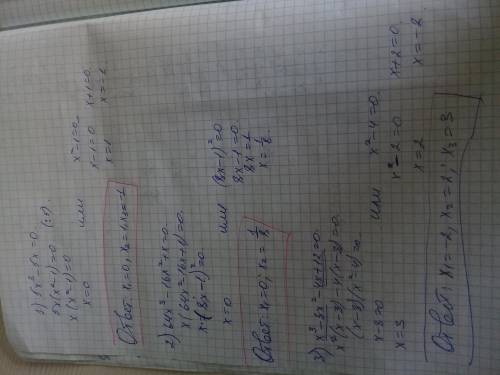 1) 5x³-5x=0
5x(x²-1)=0 (:5)
x(x²-1)=0
x=0 или x²-1=0
x-1=0 x+1=0
x=1 x=-1
Ответ: x₁=0; x₂=1; x₃=-1
2) 64x³-16x²+x=0
x(64x²-16x+1)=0
x·(8x-1)²=0
x=0 или (8x-1)²=0
8x-1=0
8x=1
x=1/8
Ответ: x₁=0; x₂=1/8
3) x³-3x²-4x+12=0
x²(x-3)-4(x-3)=0
(x-3)(x²-4)=0
x-3=0 или x²-4=0
x=3 x-2=0 x+2=0
x=2 x=-2
Ответ: x₁=-2; x₂=2; x₃=3